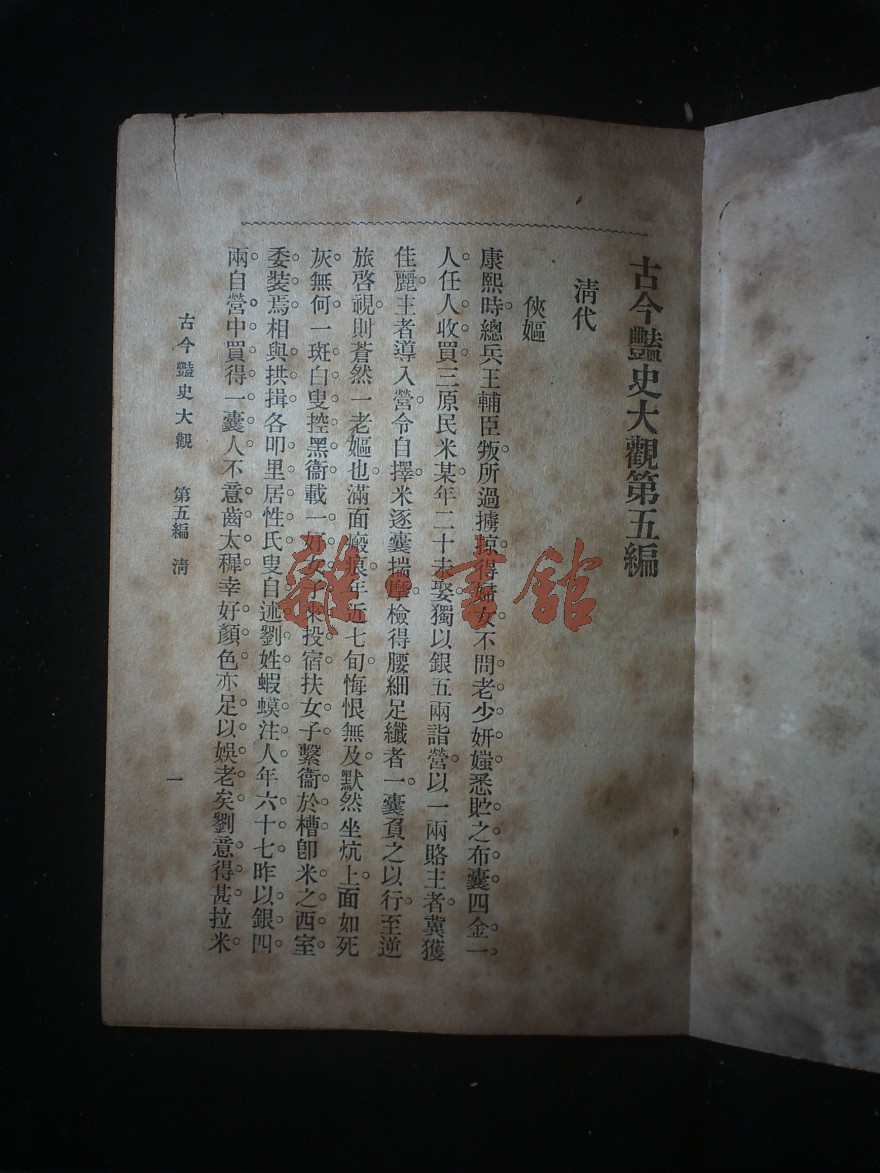 古今豔史大觀第五編
清代
俠嫗
康熙時總兵王輔臣叛所過擄掠得婦女不問老少妍媸悉貯之布囊四金一
人任人收買三原民米某年二十未娶獨以銀五兩詣營以一兩賂主者冀獲
佳麗主者導入營令自擇米逐囊揣摩檢得腰細足纖者一囊負之以行至逆
旅啓視則蒼然一老嫗也滿面瘢痕年近七旬悔恨無及默然坐炕上面如死
灰無何一斑白叟控黑衞載一好女子來投宿扶女子繫衞於槽卽米之西室
委裝焉相與拱揖各叩里居性氏叟自述劉姓蝦蟆洼人年六十七昨以銀四
兩自營中買得一囊人不意齒太穉幸好顏色亦足以娛老矣劉意得甚拉米
古今豔史大觀 第五編 清
一
雜·書館